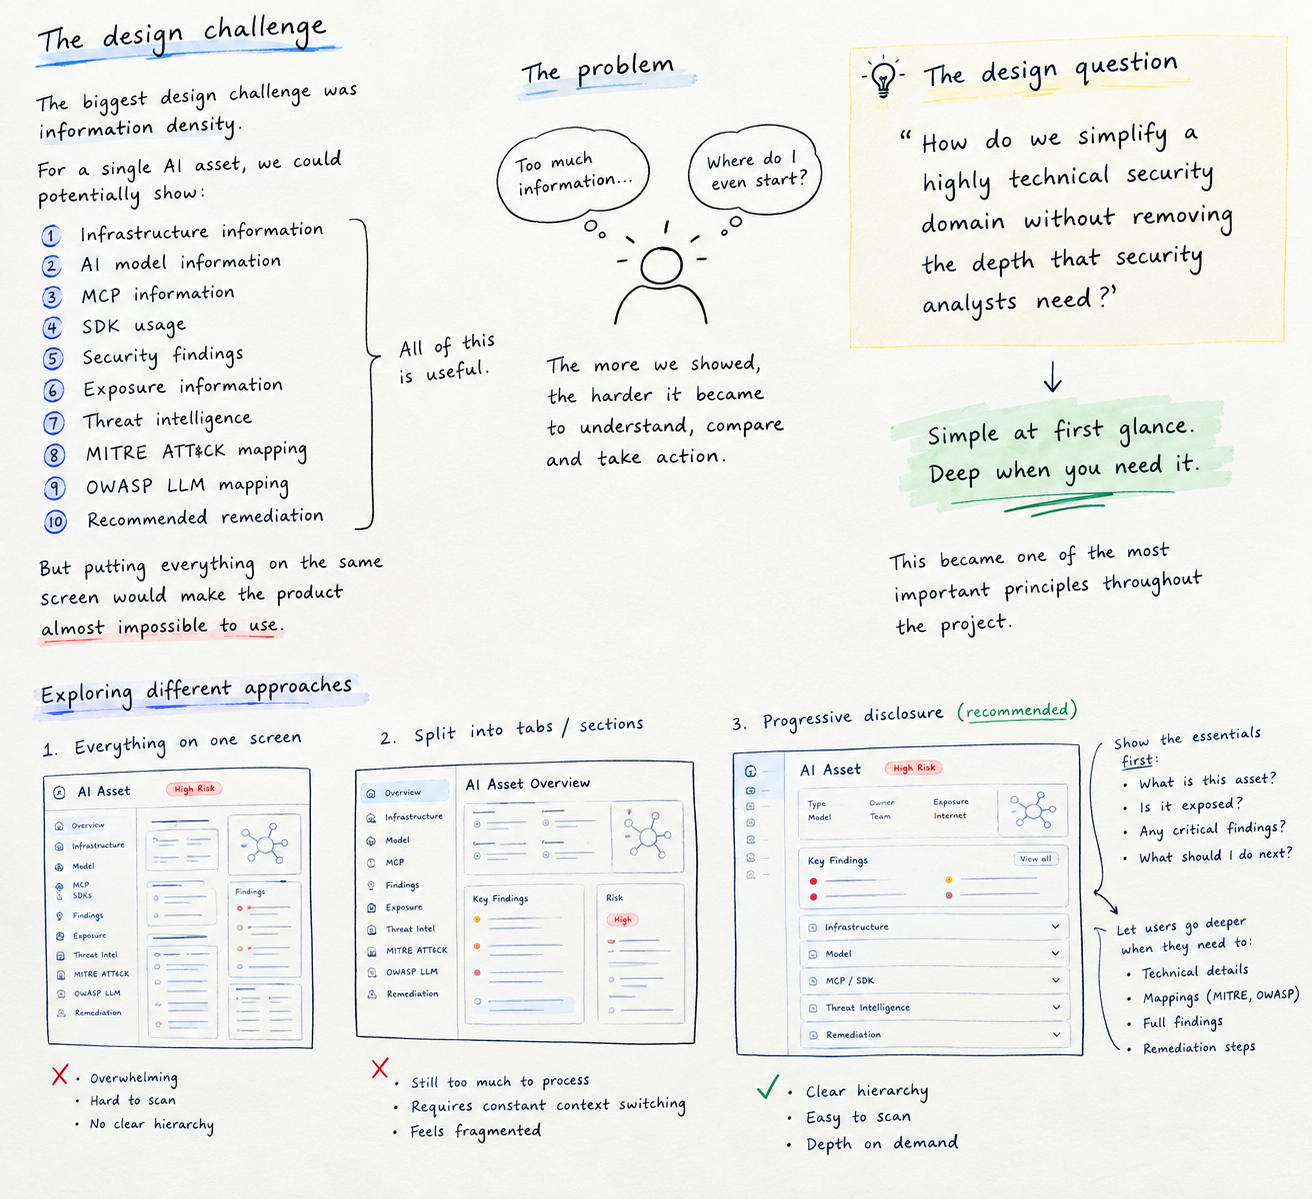 The design challenge
The biggest design challenge was
information density.
For a single AI asset, we could
potentially show:
1 Infrastructure information
2 AI model information
3 MCP information
4 SDK usage
5 Security findings
6 Exposure information
7 Threat intelligence
8 MITRE ATT&CK mapping
9 OWASP LLM mapping
10 Recommended remediation
All of this
is useful.
But putting everything on the same
screen would make the product
almost impossible to use.
The problem
Too much
information...
Where do I
even start?
The more we showed,
the harder it became
to understand, compare
and take action.
The design question
“ How do we simplify a
highly technical security
domain without removing
the depth that security
analysts need?”
Simple at first glance.
Deep when you need it.
This became one of the most
important principles throughout
the project.
Exploring different approaches
1. Everything on one screen
AI Asset High Risk
Overview
Infrastructure
Model
MCP
SDKs
Findings
Exposure
Threat Intel
MITRE ATT&CK
OWASP LLM
Remediation
Findings
X • Overwhelming
• Hard to scan
• No clear hierarchy
2. Split into tabs / sections
Overview
Infrastructure
Model
MCP
Findings
Exposure
Threat Intel
MITRE ATT&CK
OWASP LLM
Remediation
AI Asset Overview
Key Findings
Risk
High
X • Still too much to process
• Requires constant context switching
• Feels fragmented
3. Progressive disclosure (recommended)
AI Asset High Risk
Type Owner Exposure
Model Team Internet
Key Findings View all
Infrastructure
Model
MCP / SDK
Threat Intelligence
Remediation
✓ • Clear hierarchy
• Easy to scan
• Depth on demand
Show the essentials
first:
• What is this asset?
• Is it exposed?
• Any critical findings?
• What should I do next?
Let users go deeper
when they need to:
• Technical details
• Mappings (MITRE, OWASP)
• Full findings
• Remediation steps